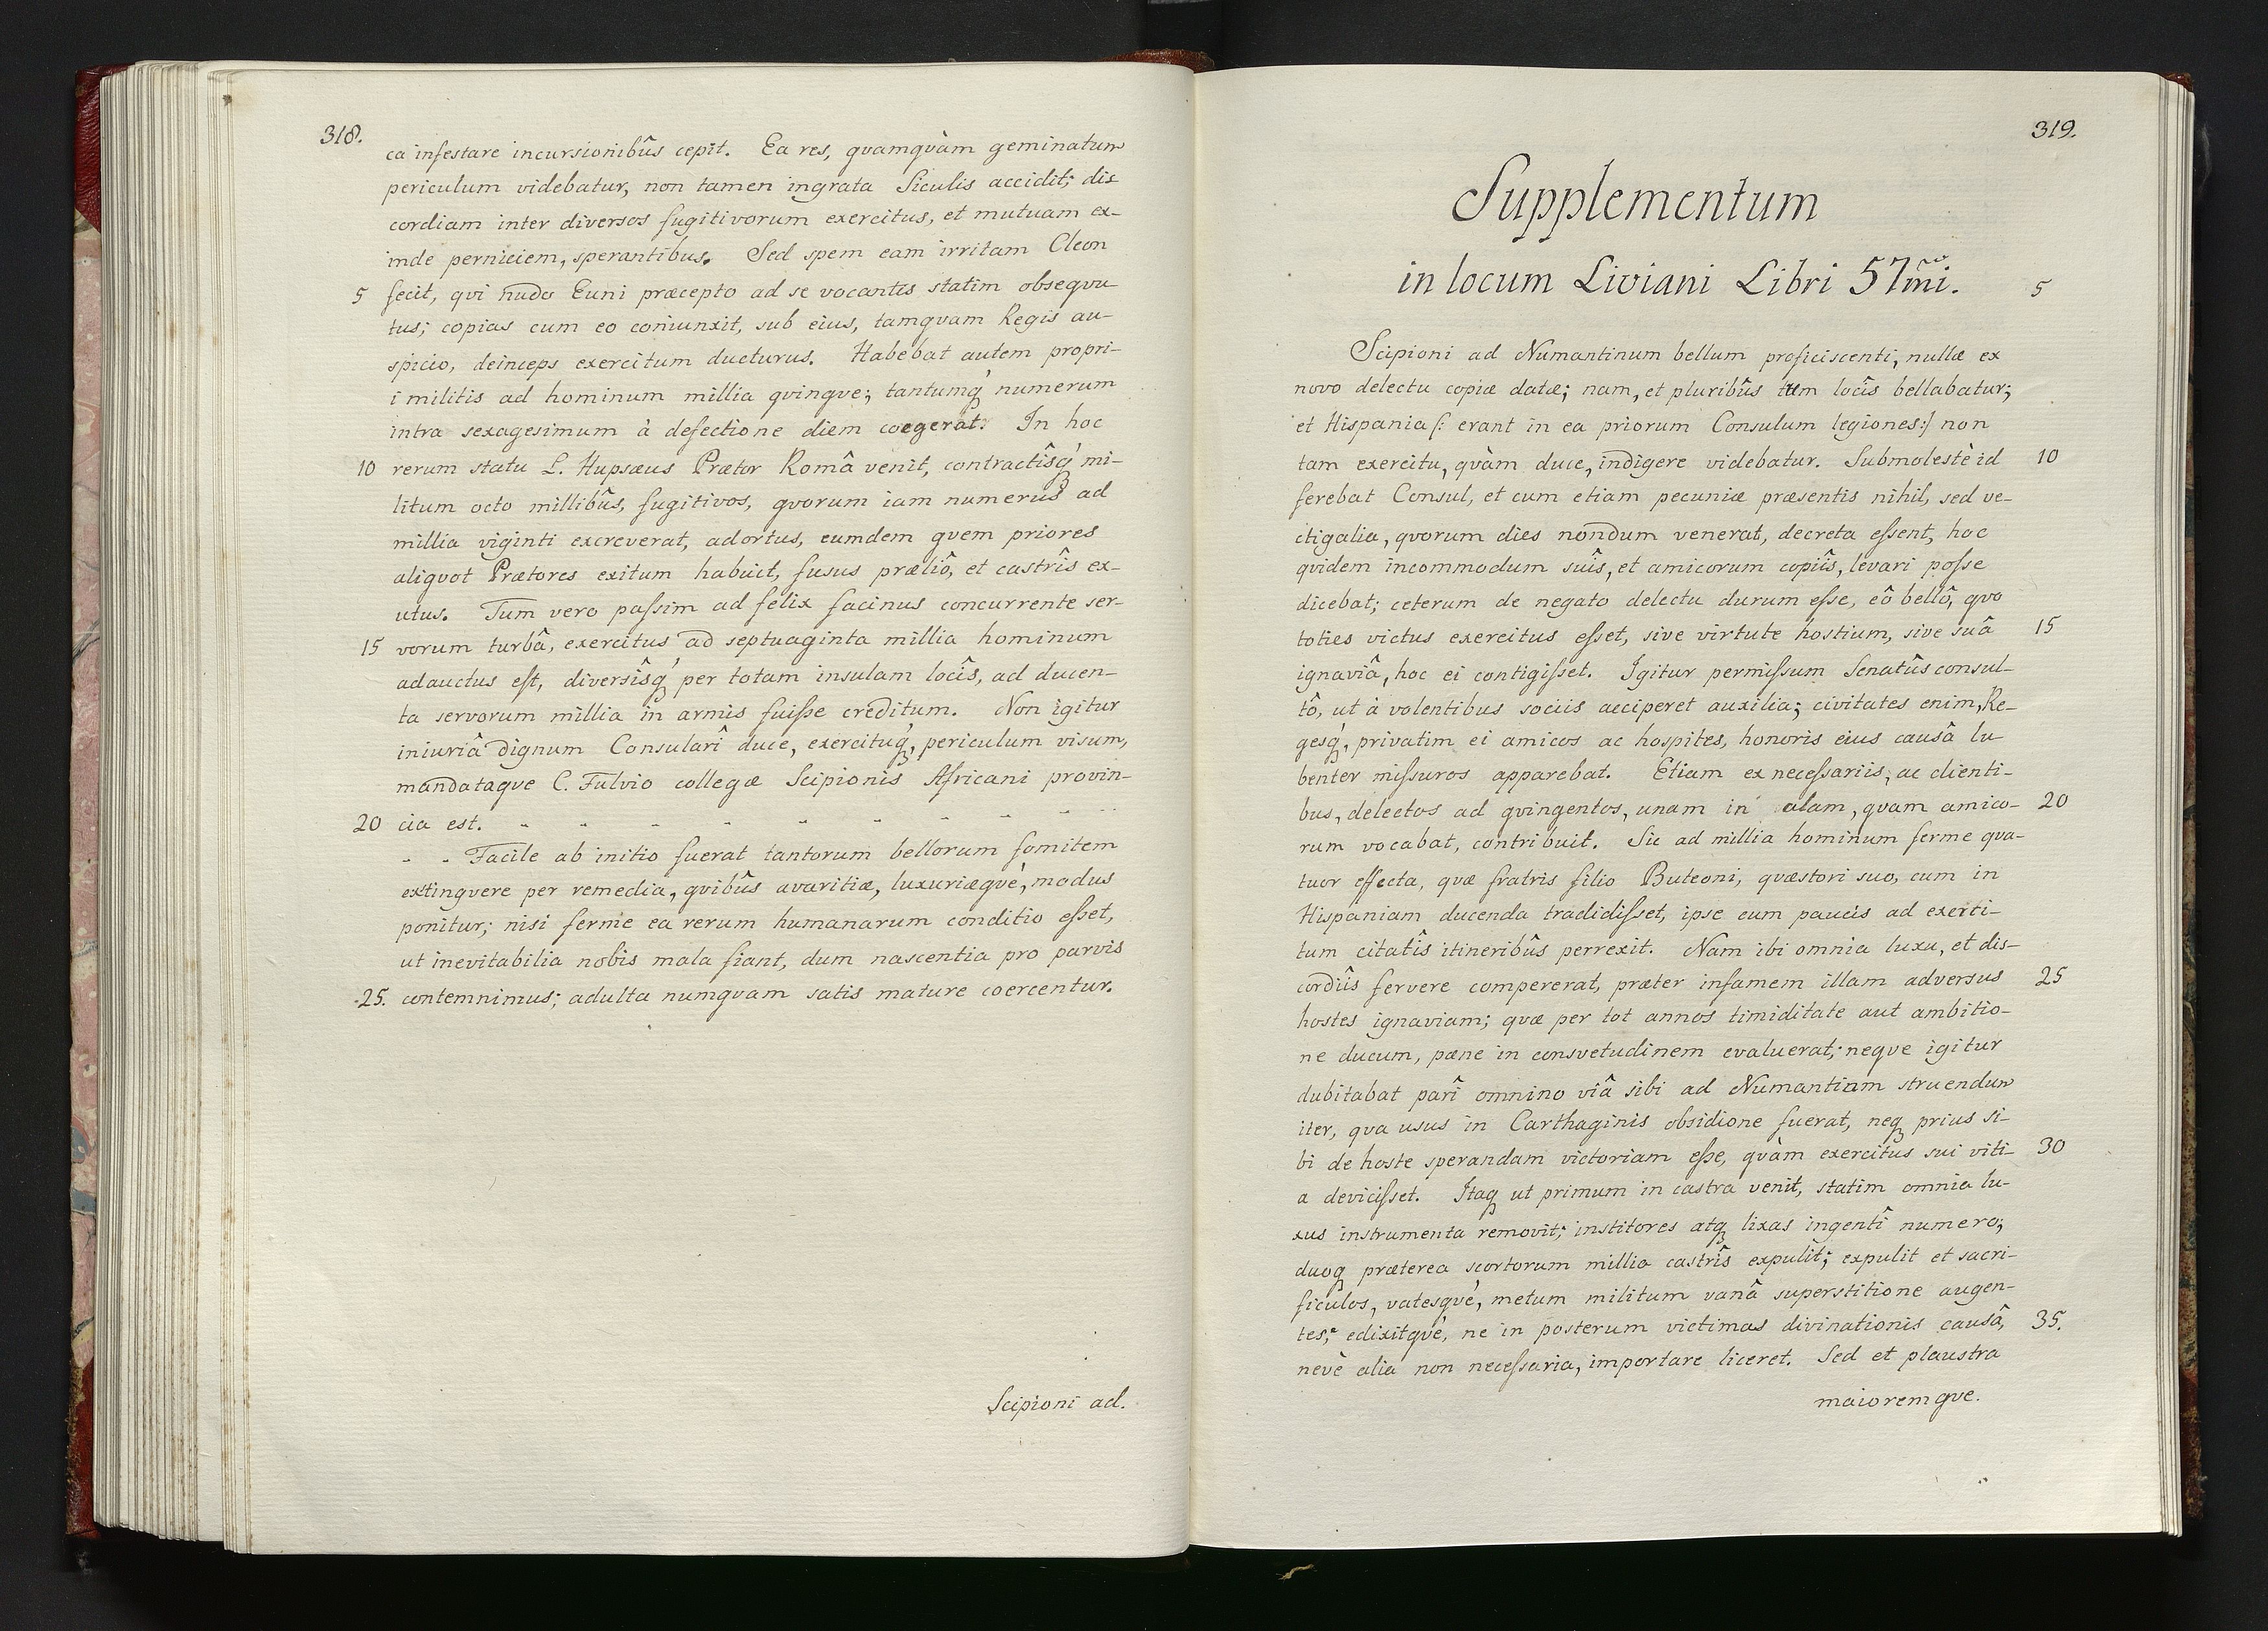 318.
ca infestare incursionibûs cepit. Ea res, qvamqvàm geminatum
periculum videbatur, non tamen ingrata Siculis accidit; dis
cordiam inter diversos fugitivorum exercitus, et mutuam ex-
inde perniciem, sperantibus. Sed spem eam irritam Cleon
5 fecit, qvi nudo Euni præcepto ad se vocantis statim obseqvu
tus; copias cum eo coniunxit, sub eius, tamqvam Regis au-
spicio, deinceps exercitum ducturus. Habebat autem propri-
i militis ad hominum millia qvinqve; tantumq́ numerum
intra sexagesimum à defectione diem coegerat. In hoc
10 rerum statu L. Hupsæus Prætor Româ venit, contractîsq́ mi-
litum octo millibûs, fugitivos, qvorum iam numerus ad
millia viginti excreverat, adortus, eumdem qvem priores
aliqvot Prætores exitum habuit, fusus præliô, et castrîs ex-
utus. Tum vero passim ad felix facinus concurrente ser-
15 vorum turbâ, exercitus ad septuaginta millia hominum
adauctus est, diversîsq́ per totam insulam locîs, ad ducen-
ta servorum millia in armis fuisse creditum. Non igitur
iniuriâ dignum Consularî duce, exercituq́, periculum visum,
mandataqve C. Fulvio collegæ Scipionis Africani provin-
20 cia est. - - - - - - - - -
- - Facile ab initio fuerat tantorum bellorum fomitem
extingvere per remedia, qvibûs avaritiæ, luxuriæqvè, modus
ponitur; nisi ferme ea rerum humanarum conditio esset,
ut inevitabilia nobis mala fiant, dum nascentia pro parvis
25. contemnimus; adulta numqvam satis mature coercentur.
Scipioni ad.
319.
Supplementum
in locum Liviani Libri 57mi. 5
Scipioni ad Numantinum bellum proficiscenti, nullæ ex
novo delectu copiæ datæ; nam, et pluribûs tum locîs bellabatur;
et Hispania [: erant in ea priorum Consulum legiones:] non
tam exercitu, qvàm duce, indigere videbatur. Submolestè id 10
ferebat Consul, et cum etiam pecuniæ præsentis nihil, sed ve-
ctigalia, qvorum dies nondum venerat, decreta essent, hoc
qvidem incommodum suîs, et amicorum copiîs, levari posse
dicebat; ceterum de negato delectu durum esse, eô bellô, qvo
toties victus exercitus esset, sive virtute hostium, sive suâ 15
ignaviâ, hoc ei contigisset. Igitur permissum Senatûs consul-
tô, ut à volentibus sociis acciperet auxilia; civitates enim, Re-
gesq́, privatim ei amicos ac hospites, honoris eius causâ lu
benter missuros apparebat. Etiam ex necessariis, ac clienti-
bus, delectos ad qvingentos, unam in alam, qvam amico- 20
rum vocabat, contribuit. Sic ad millia hominum ferme qva-
tuor effecta, qvæ fratris filio Buteoni, qvæstori suo, cum in
Hispaniam ducenda tradidisset, ipse cum paucis ad exerci-
tum citatîs itineribûs perrexit. Nam ibi omnia luxu, et dis-
cordiîs fervere compererat, præter infamem illam adversus 25
hostes ignaviam; qvæ per tot annos timiditate aut ambitio-
ne ducum, pæne in consvetudinem evaluerat; neqve igitur
dubitabat parî omnino viâ sibi ad Numantiam struendum
iter, qva usus in Carthaginis obsidione fuerat, neq prius si-
bi de hoste sperandam victoriam esse, qvàm exercitus sui viti- 30
a devicisset. Itaq ut primum in castra venit, statim omnia lu-
xus instrumenta removit; institores atq lixas ingentî numero;
duoq præterea scortorum millia castrîs expulit; expulit et sacri-
ficulos, vatesqvè, metum militum vanâ superstitione augen-
tes; edixitqvè, ne in posterum victimas divinationis causâ, 35.
nevè alia non necessaria, importare liceret. Sed et plaustra
maioremqve.